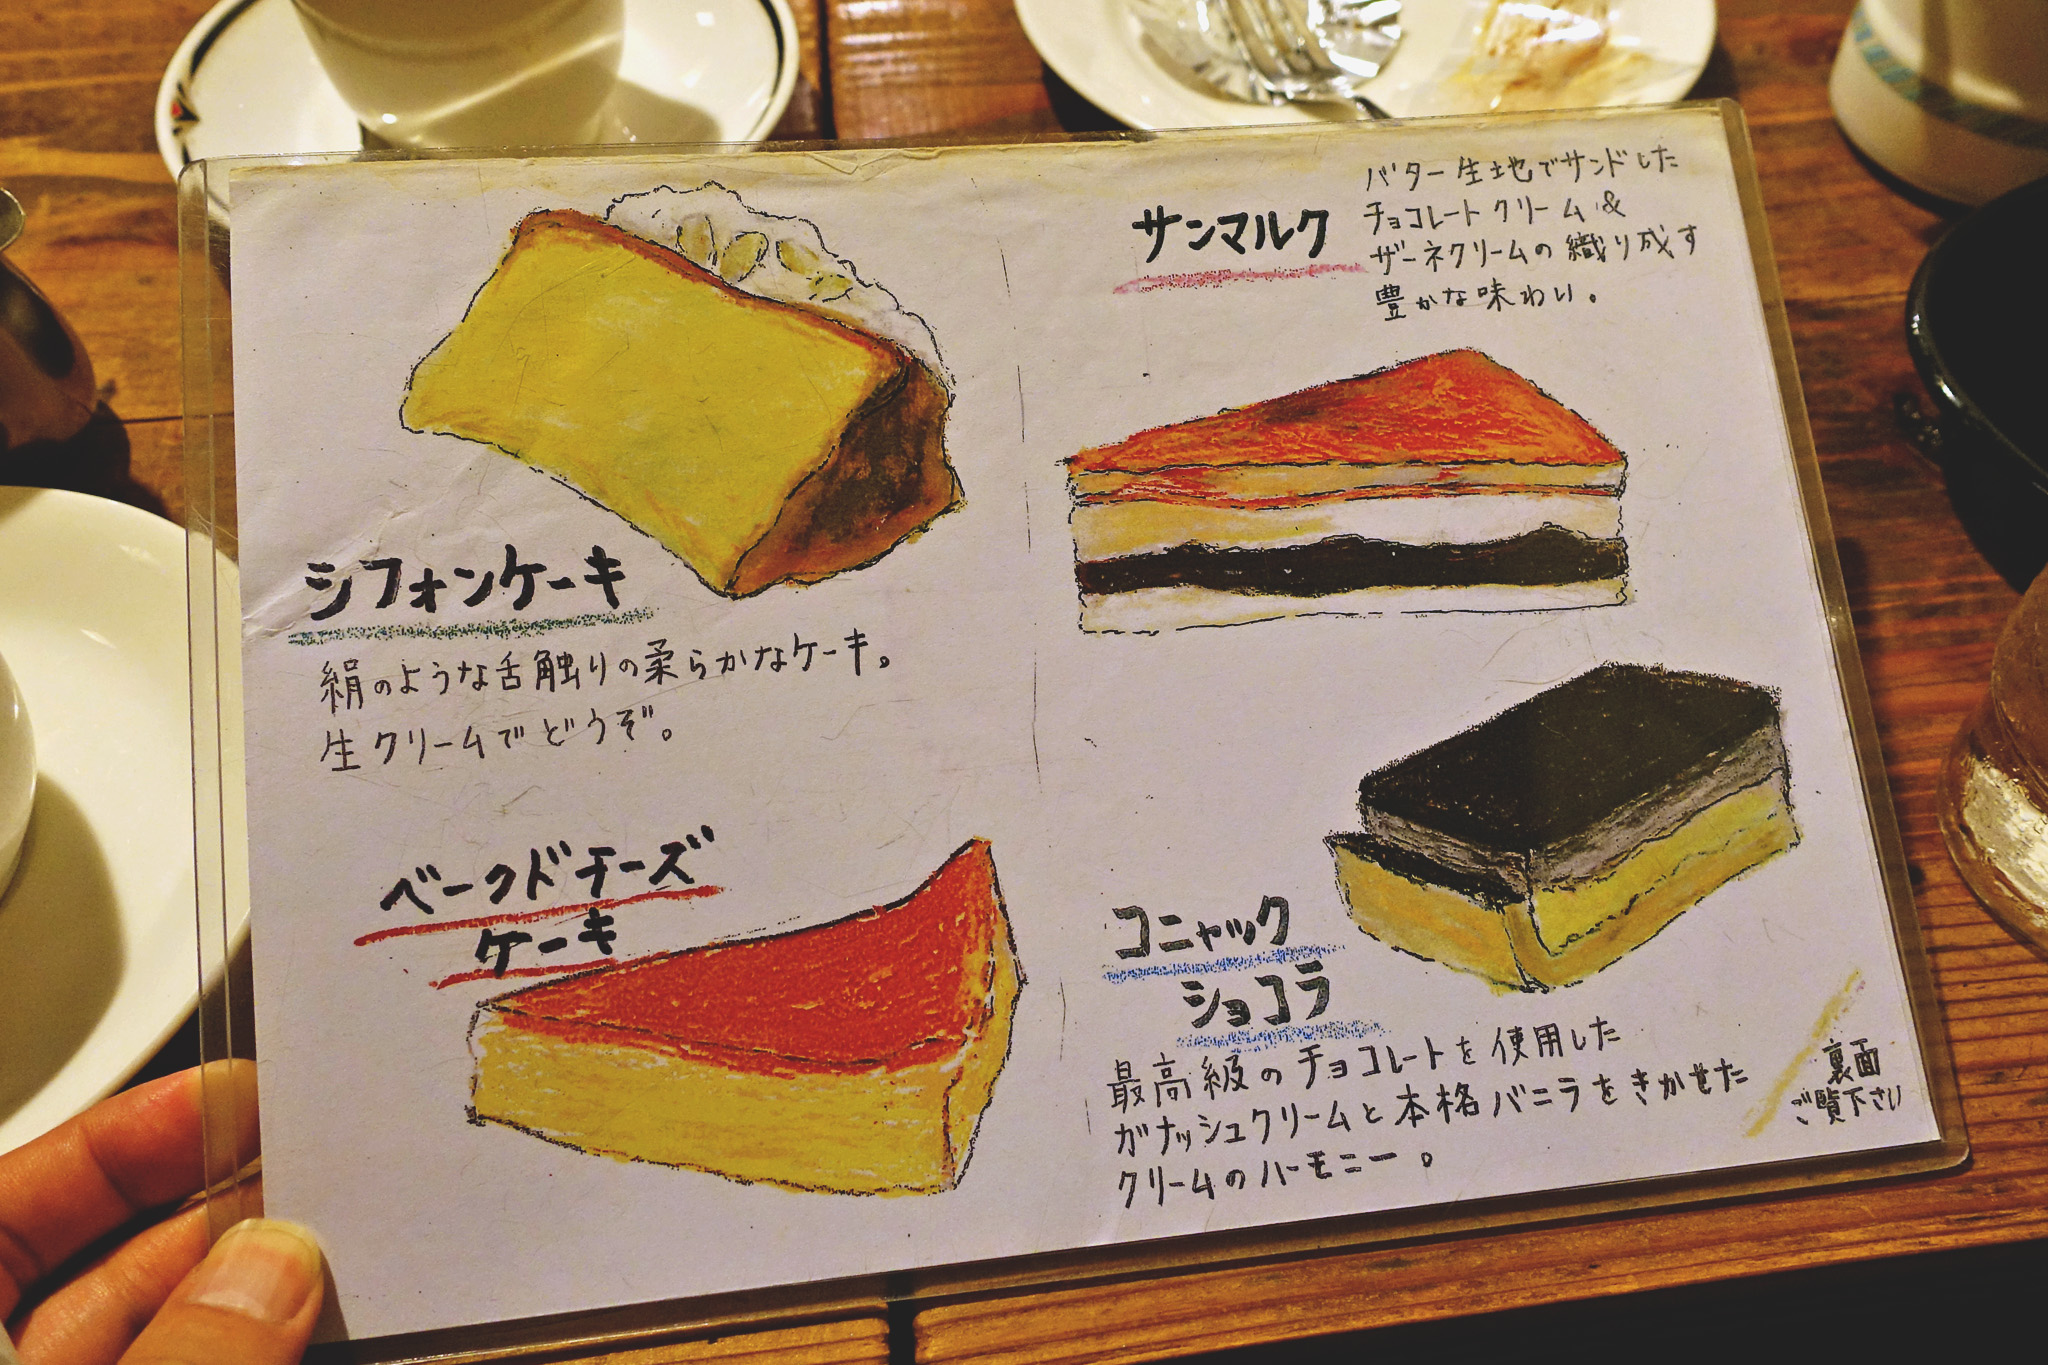 シフォンケーキ
絹のような舌触りの柔らかなケーキ。
生クリームでどうぞ。
ベークドチーズ
ケーキ
サンマルク
バター生地でサンドした
チョコレートクリーム&
ザーネクリームの織り成す
豊かな味わい。
コニャック
ショコラ
最高級のチョコレートを使用した
ガナッシュクリームと本格バニラをきかせた
クリームのハーモニー。
裏面
ご覧下さい